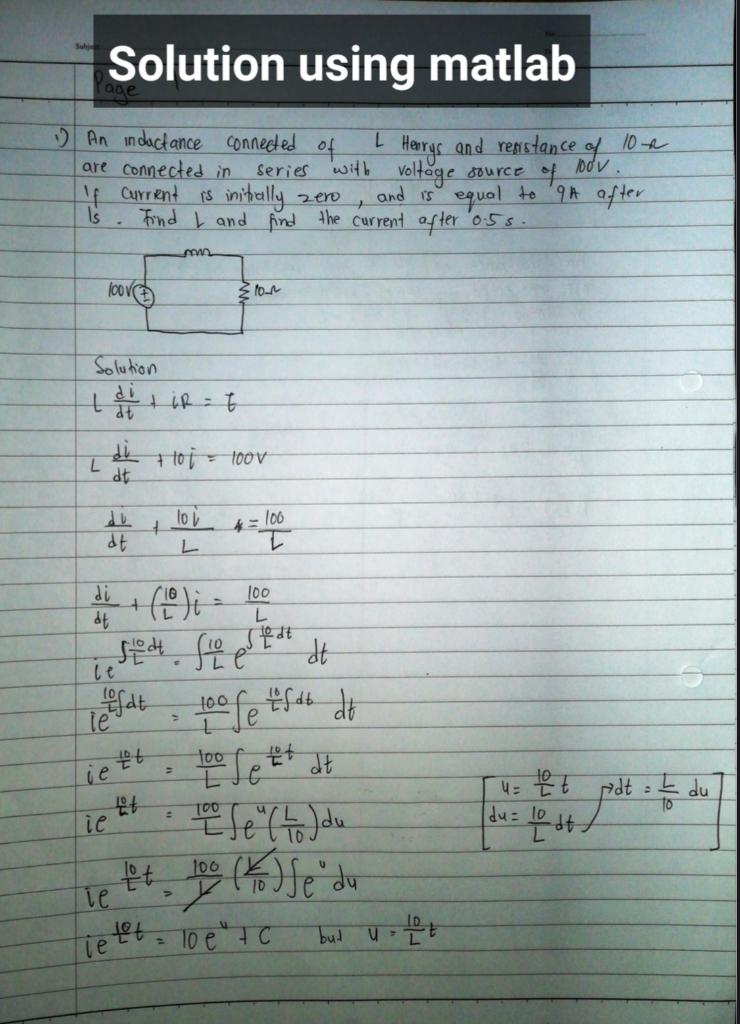 Subject
No
Solution using matlab
Page 1
1) An inductance connected of L Henrys and resistance of 10Ω
are connected in series with voltage source of 100V.
If current is initially zero, and is equal to 9A after
1s. Find L and find the current after 0.5s.
100V 10Ω
Solution
L di/dt + iR = E
L di/dt + 10i = 100V
di/dt + 10i/L = 100/L
di/dt + (10/L)i = 100/L
ie^∫10/L dt = ∫10/L e^∫10/L dt dt
ie^10/L∫dt = 100/L ∫e^10/L∫dt dt
ie^10/L t = 100/L ∫e^10/L t dt
u = 10/L t → dt = L/10 du
du = 10/L dt
ie^10/L t = 100/L ∫e^u (L/10) du
ie^10/L t = 100/L (L/10) ∫e^u du
ie^10/L t = 10e^u + C but u = 10/L t